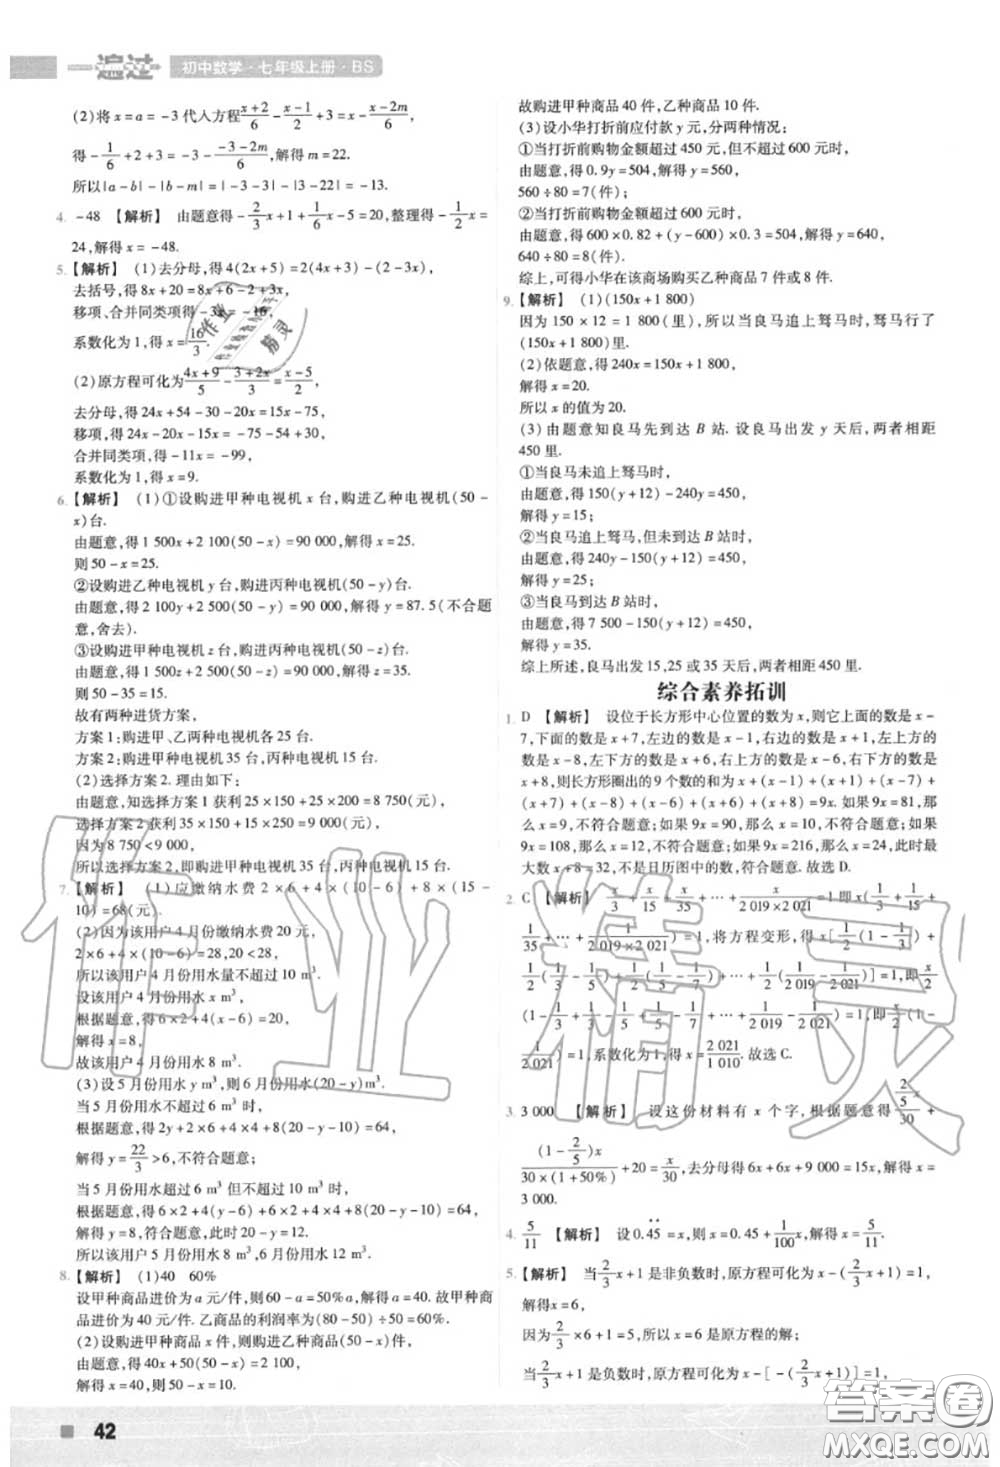 一遍过 初中数学·七年级上册·BS
(2)将 x=a=-3 代入方程(x+2)/6-(x-1)/2+3=(x-2m)/6,
得-1/6+2+3=(-3-2m)/6,解得 m=22.
所以|a-b|-|b-m|=|-3-3|-|3-22|=-13.
4. -48 【解析】 由题意得-2/3x+1+1/6x-5=20,整理得-1/2x=
24,解得 x=-48.
5. 【解析】 (1)去分母,得 4(2x+5)=2(4x+3)-(2-3x),
去括号,得 8x+20=8x+6-2+3x,
移项、合并同类项得-3x=-16,
系数化为 1,得 x=16/3.
(2)原方程可化为(4x+9)/5-(3+2x)/3=(x-5)/2,
去分母,得 24x+54-30-20x=15x-75,
移项,得 24x-20x-15x=-75-54+30,
合并同类项,得-11x=-99,
系数化为 1,得 x=9.
6. 【解析】 (1)①设购进甲种电视机 x 台,购进乙种电视机(50-
x)台.
由题意,得 1 500x+2 100(50-x)=90 000,解得 x=25.
则 50-x=25.
②设购进乙种电视机 y 台,购进丙种电视机(50-y)台.
由题意,得 2 100y+2 500(50-y)=90 000,解得 y=87.5(不合题
意,舍去).
③设购进甲种电视机 z 台,购进丙种电视机(50-z)台.
由题意,得 1 500z+2 500(50-z)=90 000,解得 z=35.
则 50-35=15.
故有两种进货方案,
方案 1:购进甲、乙两种电视机各 25 台.
方案 2:购进甲种电视机 35 台,丙种电视机 15 台.
(2)选择方案 2.理由如下:
由题意,知选择方案 1 获利 25×150+25×200=8 750(元),
选择方案 2 获利 35×150+15×250=9 000(元),
因为 8 750<9 000,
所以选择方案 2,即购进甲种电视机 35 台,丙种电视机 15 台.
7. 【解析】 (1)应缴纳水费 2×6+4×(10-6)+8×(15-
10)=68(元).
(2)因为该用户 4 月份缴纳水费 20 元,
2×6+4×(10-6)=28,20<28,
所以该用户 4 月份用水量不超过 10 m³.
设该用户 4 月份用水 x m³,
根据题意,得 6×2+4(x-6)=20,
解得 x=8,
故该用户 4 月份用水 8 m³.
(3)设 5 月份用水 y m³,则 6 月份用水(20-y)m³.
当 5 月份用水不超过 6 m³时,
根据题意,得 2y+2×6+4×4+8(20-y-10)=64,
解得 y=22/3>6,不符合题意;
当 5 月份用水超过 6 m³但不超过 10 m³时,
根据题意,得 6×2+4(y-6)+6×2+4×4+8(20-y-10)=64,
解得 y=8,符合题意,此时 20-y=12.
所以该用户 5 月份用水 8 m³,6 月份用水 12 m³.
8. 【解析】 (1)40 60%
设甲种商品进价为 a 元/件,则 60-a=50%a,解得 a=40.故甲种商品
进价为 40 元/件.乙商品的利润率为(80-50)÷50=60%.
(2)设购进甲种商品 x 件,则购进乙种商品(50-x)件,
由题意,得 40x+50(50-x)=2 100,
解得 x=40,则 50-x=10.
42
故购进甲种商品 40 件,乙种商品 10 件.
(3)设小华打折前应付款 y 元,分两种情况:
①当打折前购物金额超过 450 元,但不超过 600 元时,
由题意,得 0.9y=504,解得 y=560,
560÷80=7(件);
②当打折前购物金额超过 600 元时,
由题意,得 600×0.82+(y-600)×0.3=504,解得 y=640,
640÷80=8(件).
综上,可得小华在该商场购买乙种商品 7 件或 8 件.
9. 【解析】 (1)(150x+1 800)
因为 150×12=1 800(里),所以当良马追上驽马时,驽马行了
(150x+1 800)里.
(2)依题意,得 240x=150x+1 800,
解得 x=20.
所以 x 的值为 20.
(3)由题意知良马先到达 B 站.设良马出发 y 天后,两者相距
450 里.
①当良马未追上驽马时,
由题意,得 150(y+12)-240y=450,
解得 y=15;
②当良马追上驽马,但未到达 B 站时,
由题意,得 240y-150(y+12)=450,
解得 y=25;
③当良马到达 B 站时,
由题意,得 7 500-150(y+12)=450,
解得 y=35.
综上所述,良马出发 15,25 或 35 天后,两者相距 450 里.
综合素养拓训
1. D 【解析】 设位于长方形中心位置的数为 x,则它上面的数是 x-
7,下面的数是 x+7,左边的数是 x-1,右边的数是 x+1,左上方的
数是 x-8,左下方的数是 x+6,右上方的数是 x-6,右下方的数是
x+8,则长方形圈出的 9 个数的和为 x+(x-1)+(x+1)+(x-7)+
(x+7)+(x-8)+(x+6)+(x-6)+(x+8)=9x.如果 9x=81,那
么 x=9,不符合题意;如果 9x=90,那么 x=10,不符合题意;如果
9x=108,那么 x=12,不符合题意;如果 9x=216,那么 x=24,此时最
大数 x+8=32,不是日历图中的数,符合题意.故选 D.
2. C 【解析】 x/3+x/15+x/35+…+x/(2 019×2 021)=1 即 x(1/3+1/15+
1/35+…+1/(2 019×2 021))=1,将方程变形,得 x[1/2(1-1/3)+
1/2(1/3-1/5)+1/2(1/5-1/7)+…+1/2(1/2 019-1/2 021)]=1,即x/2
(1-1/3+1/3-1/5+1/5-1/7+…+1/2 019-1/2 021)=1,即x/2(1-
1/2 021)=1,系数化为 1,得 x=2 021/1 010.故选 C.
3. 3 000 【解析】 设这份材料有 x 个字,根据题意得(2/5x)/30+
(1-2/5)x/(30×(1+50%))+20=x/30,去分母得 6x+6x+9 000=15x,解得 x=
3 000.
4. 5/11 【解析】 设 0.4̇5̇=x,则 x=0.45+1/100x,解得 x=5/11.
5. 【解析】 当2/3x+1是非负数时,原方程可化为 x-(2/3x+1)=1,
解得x=6,
因为2/3×6+1=5,所以 x=6 是原方程的解;
当2/3x+1是负数时,原方程可化为 x-[-(2/3x+1)]=1,
作业精灵
作业精灵
答案圈
MXQE.COM